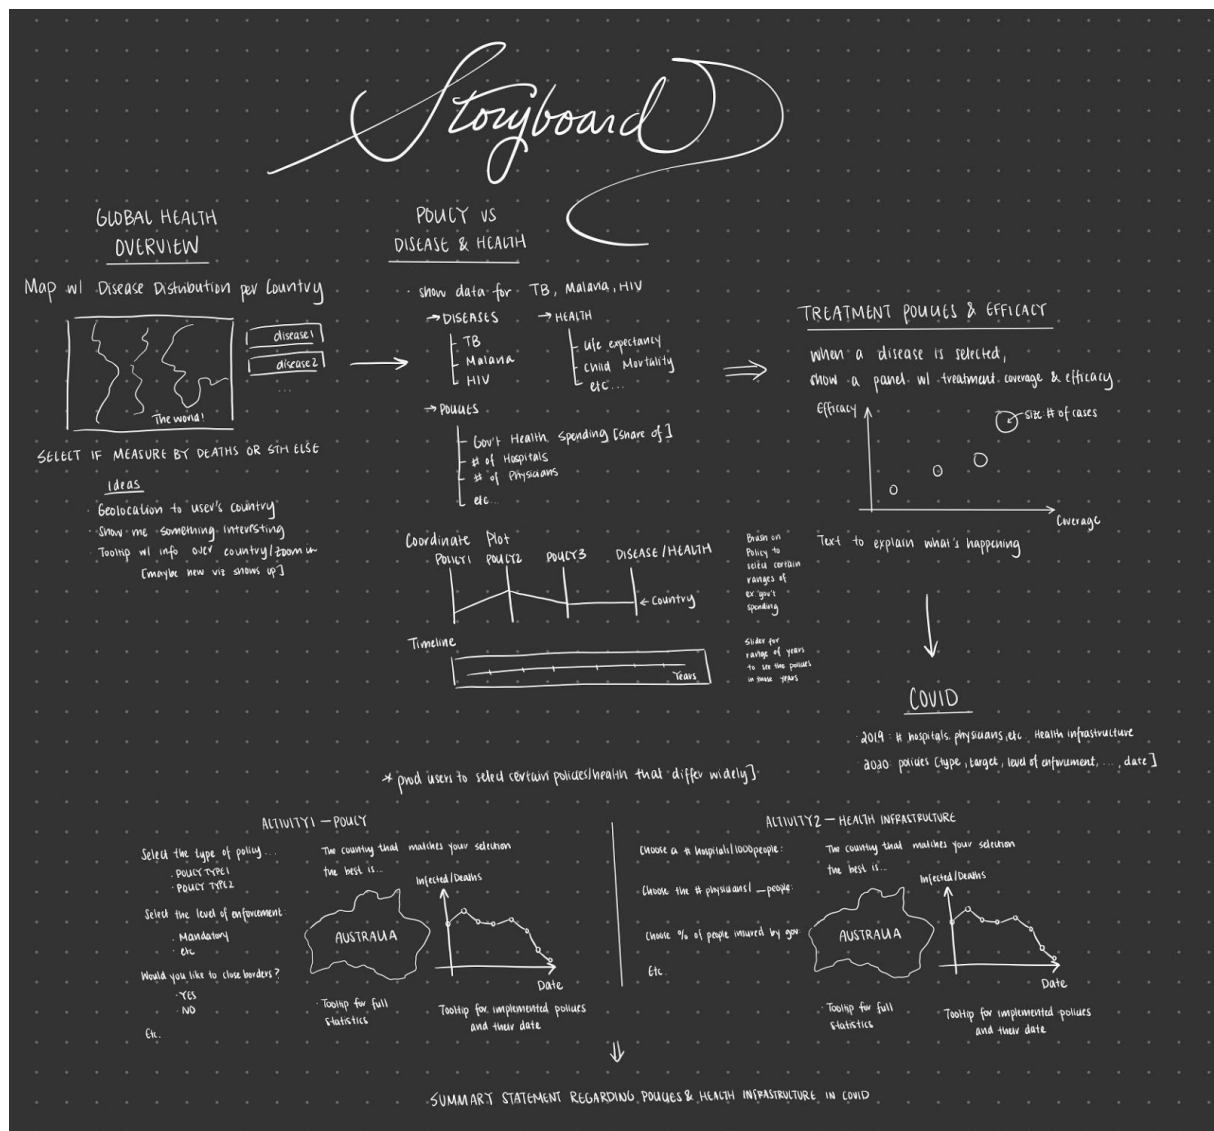 Storyboard
GLOBAL HEALTH
OVERVIEW
Map w/ Disease Distribution per Country
disease1
disease2
...
The world!
SELECT IF MEASURE BY DEATHS OR STH ELSE
Ideas
· Geolocation to user's country
· Show me something interesting
· Tooltip w/ info over country/zoom in
[maybe new viz shows up]
POLICY VS
DISEASE & HEALTH
· show data for TB, Malaria, HIV
→ DISEASES
TB
Malaria
HIV
→ HEALTH
Life expectancy
Child Mortality
etc...
→ POLICIES
Gov't Health Spending [share of]
# of Hospitals
# of Physicians
etc...
Coordinate Plot
POLICY1 POLICY2 POLICY3 DISEASE/HEALTH
← Country
Brush on
Policy to
select certain
ranges of
ex: gov't
spending
Timeline
Years
Slider for
range of years
to see the policies
in those years
TREATMENT POLICIES & EFFICACY
When a disease is selected,
show a panel w/ treatment coverage & efficacy
Efficacy
size: # of cases
Coverage
Text to explain what's happening
COVID
· 2019: # hospitals, physicians, etc. Health infrastructure
· 2020: policies [type, target, level of enforcement, ..., date]
* prod users to select certain policies/health that differ widely]
ACTIVITY1 — POLICY
Select the type of policy...
· POLICY TYPE1
· POLICY TYPE2
Select the level of enforcement:
· Mandatory
· etc
Would you like to close borders?
· YES
· NO
Etc.
The country that matches your selection
the best is...
AUSTRALIA
· Tooltip for full
statistics
Infected/Deaths
Date
Tooltip for implemented policies
and their date
ACTIVITY2 — HEALTH INFRASTRUCTURE
Choose a # hospitals/1000people:
Choose the # physicians/ __people:
Choose % of people insured by gov:
Etc.
The country that matches your selection
the best is...
AUSTRALIA
· Tooltip for full
statistics
Infected/Deaths
Date
Tooltip for implemented policies
and their date
SUMMARY STATEMENT REGARDING POLICIES & HEALTH INFRASTRUCTURE IN COVID